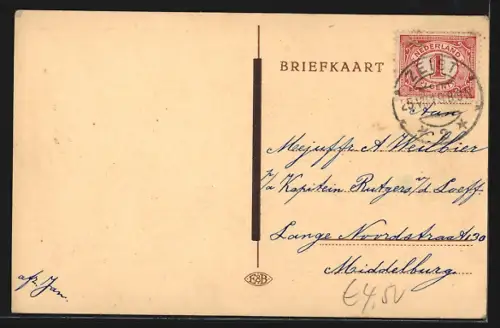 BRIEFKAART
NEDERLAND
1
CENT
ZEIST
Aan
Mejuffr. A Weilbier
p/a Kapitein Rutgers v/d Loeff.
Lange Noordstraat 130
Middelburg.
afz. Jan.
€4,50